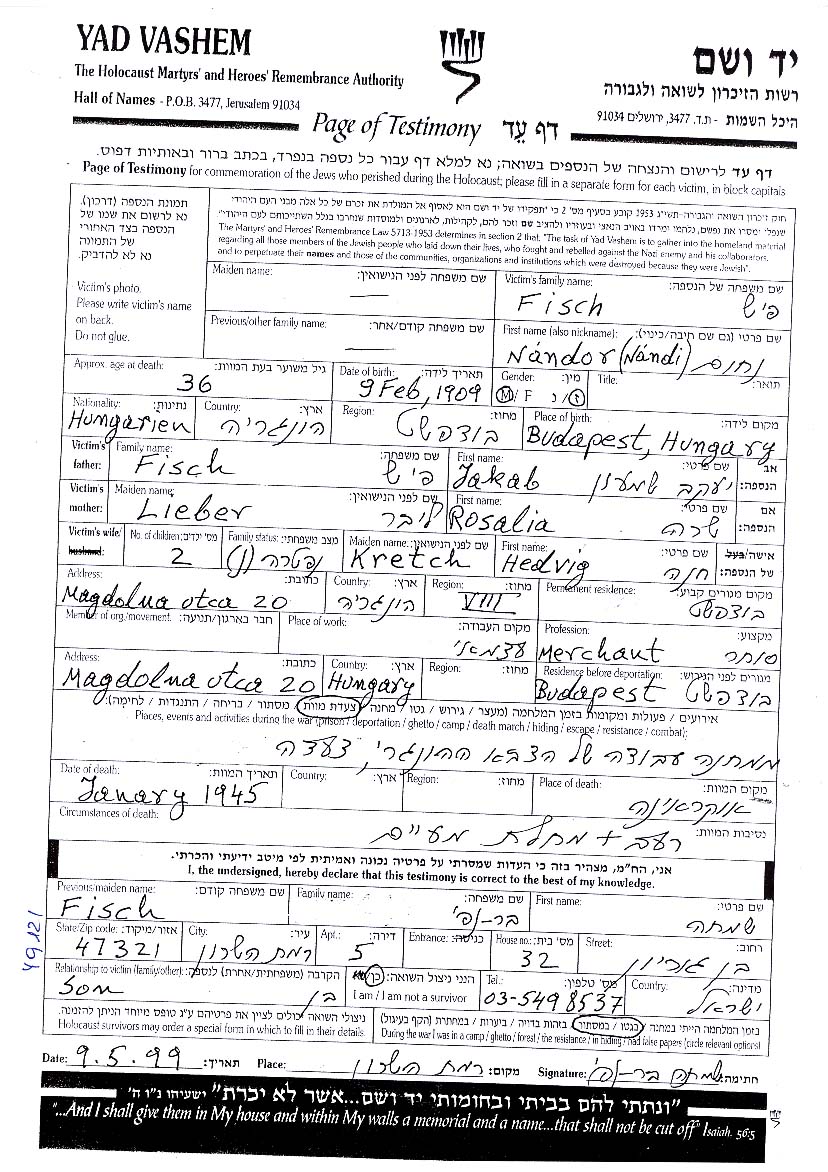 YAD VASHEM
The Holocaust Martyrs' and Heroes' Remembrance Authority
Hall of Names - P.O.B. 3477, Jerusalem 91034
יד ושם
רשות הזיכרון לשואה ולגבורה
היכל השמות - ת.ד. 3477, ירושלים 91034
Page of Testimony דף עד
דף עד לרישום והנצחה של הנספים בשואה; נא למלא דף עבור כל נספה בנפרד, בכתב ברור ובאותיות דפוס.
Page of Testimony for commemoration of the Jews who perished during the Holocaust; please fill in a separate form for each victim, in block capitals
תמונת הנספה (דרכון).
נא לרשום את שמו של
הנספה בצד האחורי
של התמונה
נא לא להדביק.
Victim's photo.
Please write victim's name
on back.
Do not glue.
חוק זיכרון השואה והגבורה-תשי"ג 1953 קובע בסעיף מס' 2 כי "תפקידו של יד ושם היא לאסוף אל המולדת את זכרם של כל אלה מבני העם היהודי
שנפלו ומסרו את נפשם, נלחמו ומרדו באויב הנאצי ובעוזריו ולהציב שם וזכר להם, לקהילות, לארגונים ולמוסדות שנחרבו בגלל השתייכותם לעם היהודי"
The Martyrs' and Heroes' Remembrance Law 5713-1953 determines in section 2 that "The task of Yad Vashem is to gather into the homeland material
regarding all those members of the Jewish people who laid down their lives, who fought and rebelled against the Nazi enemy and his collaborators,
and to perpetuate their names and those of the communities, organizations and institutions which were destroyed because they were Jewish".
Maiden name: שם משפחה לפני הנישואין: —
Victim's family name: שם משפחה של הנספה: Fisch פיש
Previous/other family name: שם משפחה קודם/אחר: —
First name (also nickname): שם פרטי (גם שם חיבה/כינוי): Nándor (Nándi) נחום
Approx. age at death: גיל משוער בעת המוות: 36
Date of birth: תאריך לידה: 9 Feb, 1909
Gender: מין: M/ F ז / נ
Title: תואר:
Nationality: נתינות: Hungarien
Country: ארץ: הונגריה
Region: מחוז: בודפשט
Place of birth: מקום לידה: Budapest, Hungary
Victim's father: Family name: שם משפחה: Fisch פיש
First name: שם פרטי: Jakab יעקב שמעון
אב הנספה:
Victim's mother: Maiden name: שם לפני הנישואין: Lieber ליבר
First name: שם פרטי: Rosalia שרה
אם הנספה:
Victim's wife/husband: No. of children: מס' ילדים: 2
Family status: מצב משפחתי: נפטרה (ן)
Maiden name: שם לפני הנישואין: Kretch
First name: שם פרטי: Hedvig חנה
אישה/בעל של הנספה:
Address: כתובת: Magdolna utca 20
Country: ארץ: הונגריה
Region: מחוז: VIII
Permanent residence: מקום מגורים קבוע: בודפשט
Member of org./movement: חבר בארגון/תנועה:
Place of work: מקום העבודה: עצמאי
Profession: מקצוע: Merchant סוחר
Address: כתובת: Magdolna utca 20
Country: ארץ: Hungary
Region: מחוז:
Residence before deportation: מגורים לפני הגירוש: Budapest בודפשט
אירועים / פעולות ומקומות בזמן המלחמה (מעצר / גירוש / גטו / מחנה / צעדת מוות / מסתור / בריחה / התנגדות / לחימה):
Places, events and activities during the war (prison / deportation / ghetto / camp / death march / hiding / escape / resistance / combat):
ממחנה עבודה של הצבא ההונגרי, צעדה
Date of death: תאריך המוות: Janary 1945
Country: ארץ:
Region: מחוז:
Place of death: מקום המוות: אוקראינה
Circumstances of death: נסיבות המוות:
רעב + מחלת מעיים
אני, הח"מ, מצהיר בזה כי העדות שמסרתי על פרטיה נכונה ואמיתית לפי מיטב ידיעתי והכרתי.
I, the undersigned, hereby declare that this testimony is correct to the best of my knowledge.
Previous/maiden name: שם משפחה קודם: Fisch
Family name: שם משפחה:
First name: שם פרטי: שמחה
State/Zip code: אזור/מיקוד: 47321
City: עיר: רמת השרון
Apt.: דירה: 5
Entrance: כניסה:
House no.: מס' בית: 32
Street: רחוב: בן גוריון
Relationship to victim (family/other): הקרבה (משפחתית/אחרת) לנספה: Son בן
הנני ניצול השואה: כן
I am / I am not a survivor
Tel.: מס' טלפון: 03-5498537
Country: מדינה: ישראל
ניצולי השואה יכולים לציין את פרטיהם ע"ג טופס מיוחד הניתן להזמנה.
Holocaust survivors may order a special form in which to fill in their details.
בזמן המלחמה הייתי במחנה / בגטו / במסתור / בזהות בדויה / ביערות / במחתרת (הקף בעיגול)
During the war I was in a camp / ghetto / forest / the resistance / in hiding / had false papers (circle relevant option)
Date: 9.5.99 תאריך:
Place: מקום: רמת השרון
Signature: חתימה:
"ונתתי להם בביתי ובחומותי יד ושם...אשר לא יכרת" ישעיהו נ"ו ה'
"...And I shall give them in My house and within My walls a memorial and a name...that shall not be cut off" Isaiah. 56:5
49121